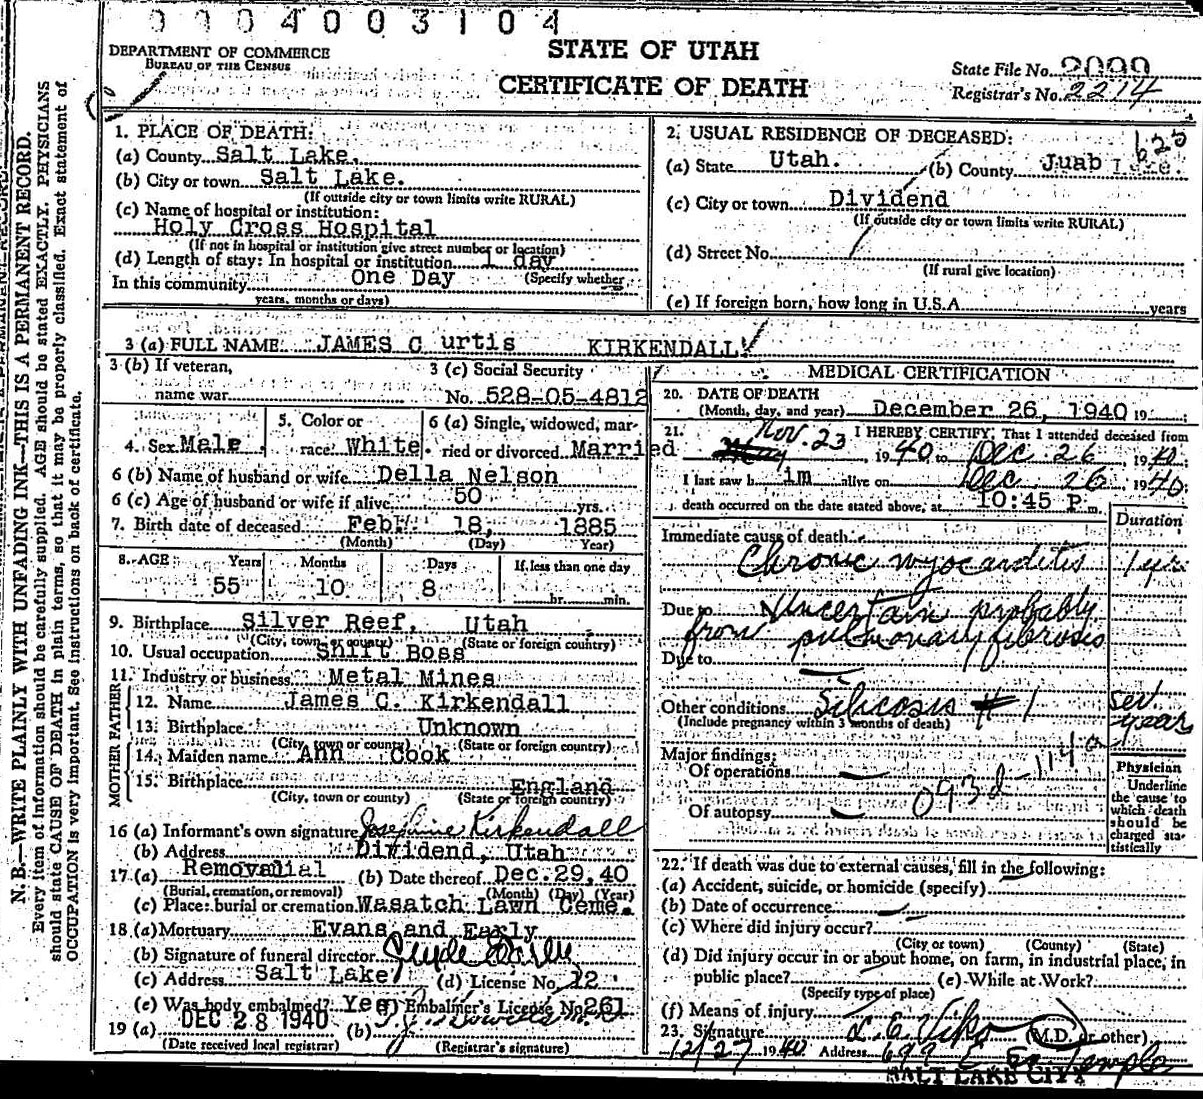 0004003104
DEPARTMENT OF COMMERCE
BUREAU OF THE CENSUS
STATE OF UTAH
CERTIFICATE OF DEATH
State File No. 2099
Registrar's No. 2214
N. B.—WRITE PLAINLY WITH UNFADING INK—THIS IS A PERMANENT RECORD.
Every item of information should be carefully supplied. AGE should be stated EXACTLY. PHYSICIANS
should state CAUSE OF DEATH in plain terms, so that it may be properly classified. Exact statement of
OCCUPATION is very important. See instructions on back of certificate.
1. PLACE OF DEATH:
(a) County Salt Lake.
(b) City or town Salt Lake.
(If outside city or town limits write RURAL)
(c) Name of hospital or institution:
Holy Cross Hospital
(If not in hospital or institution give street number or location)
(d) Length of stay: In hospital or institution 1 day
(Specify whether
In this community One Day
years, months or days)
2. USUAL RESIDENCE OF DECEASED:
625
(a) State Utah. (b) County Juab
(c) City or town Dividend
(If outside city or town limits write RURAL)
(d) Street No.
(If rural give location)
(e) If foreign born, how long in U.S.A. years
3 (a) FULL NAME JAMES C urtis KIRKENDALL
3 (b) If veteran,
name war
3 (c) Social Security
No. 528-05-4812
4. Sex Male
5. Color or
race White.
6 (a) Single, widowed, mar-
ried or divorced Married
6 (b) Name of husband or wife Della Nelson
6 (c) Age of husband or wife if alive 50 yrs.
7. Birth date of deceased Feb. 18, 1885
(Month) (Day) Year)
8. AGE Years Months Days If less than one day
55 10 8 hr. min.
9. Birthplace Silver Reef, Utah
(City, town, or county) (State or foreign country)
10. Usual occupation Shift Boss
11. Industry or business Metal Mines
FATHER
12. Name James C. Kirkendall
13. Birthplace Unknown
(City, town or county) (State or foreign country)
MOTHER
14. Maiden name Ann Cook
15. Birthplace England
(City, town or county) (State or foreign country)
16 (a) Informant's own signature Josephine Kirkendall
(b) Address Dividend, Utah
17. (a) Removal (b) Date thereof Dec. 29, 40
(Burial, cremation, or removal) (Month) (Day) (Year)
(c) Place: burial or cremation Wasatch Lawn Ceme.
18 (a) Mortuary Evans and Early
(b) Signature of funeral director
(c) Address Salt Lake (d) License No. 12
(e) Was body embalmed? Yes (f) Embalmer's License No. 261
19 (a) DEC 28 1940 (b)
(Date received local registrar) (Registrar's signature)
MEDICAL CERTIFICATION
20. DATE OF DEATH
(Month, day, and year) December 26, 1940 19
21. I HEREBY CERTIFY, That I attended deceased from
Nov. 23 1940 to Dec. 26 1940
I last saw h im alive on Dec 26 1940
death occurred on the date stated above, at 10:45 P m.
Duration
Immediate cause of death
Chronic myocarditis 1 yr
Due to Uncertain probably
from pulmonary fibrosis
Due to
Other conditions Silicosis # 1 sev. years
(Include pregnancy within 3 months of death)
Major findings:
Of operations
093d-114a
Of autopsy
Physician
Underline
the cause to
which death
should be
charged sta-
tistically
22. If death was due to external causes, fill in the following:
(a) Accident, suicide, or homicide (specify)
(b) Date of occurrence
(c) Where did injury occur?
(City or town) (County) (State)
(d) Did injury occur in or about home, on farm, in industrial place, in
public place? (e) While at Work?
(Specify type of place)
(f) Means of injury
23. Signature L. E. Viko (M.D. or other)
12/27 1940 Address 699 E So Temple
SALT LAKE CITY